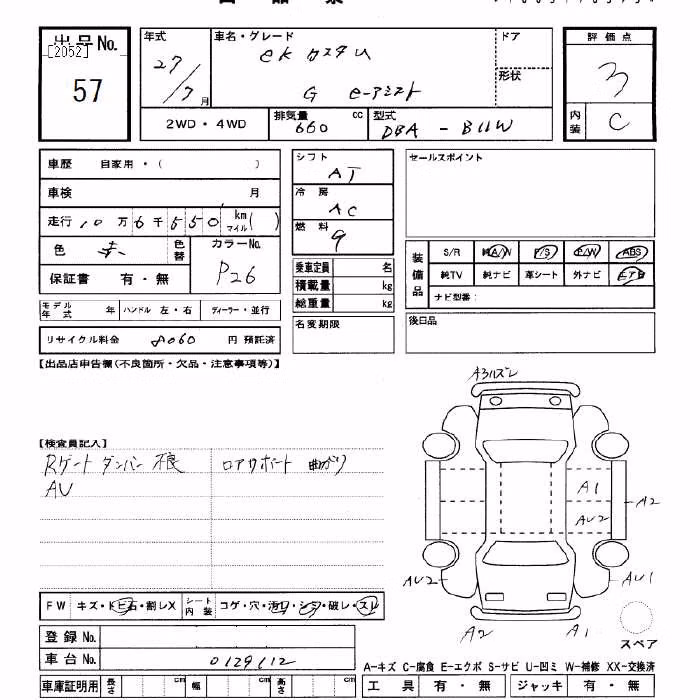 出品No.
[2052]
57
年式
27/7月
車名・グレード
ek カスタム
G e-アシスト
ドア
形状
評価点
3
内装
C
2WD・4WD
排気量
660
cc
型式
DBA - B11W
車歴 自家用・( )
車検 月
走行 10万6千550 km マイル( )
色 赤
色替
カラーNo.
P26
保証書 有・無
シフト
AT
冷房
AC
燃料
g
乗車定員 名
積載量 kg
総重量 kg
名変期限
セールスポイント
装備品
S/R 純A/W P/S P/W ABS
純TV 純ナビ 革シート 外ナビ エアB
ナビ型番:
後日品
モデル年式 年 ハンドル 左・右 ディーラー・並行
リサイクル料金 8060 円 預託済
【出品店申告欄(不良箇所・欠品・注意事項等)】
【検査員記入】
Rゲートダンパー不良 ロアサポート曲がり
AU
A3ハズレ
A1
A2
AU2
AU2
AU1
A2
A1
スペア
FW キズ・トビ石・割レX
シート内装 コゲ・穴・汚レ・シミ・破レ・スレ
登録No.
車台No. 0129112
A-キズ C-腐食 E-エクボ S-サビ U-凹ミ W-補修 XX-交換済
車庫証明用 長さ cm 幅 cm 高さ cm
工具 有・無 ジャッキ 有・無